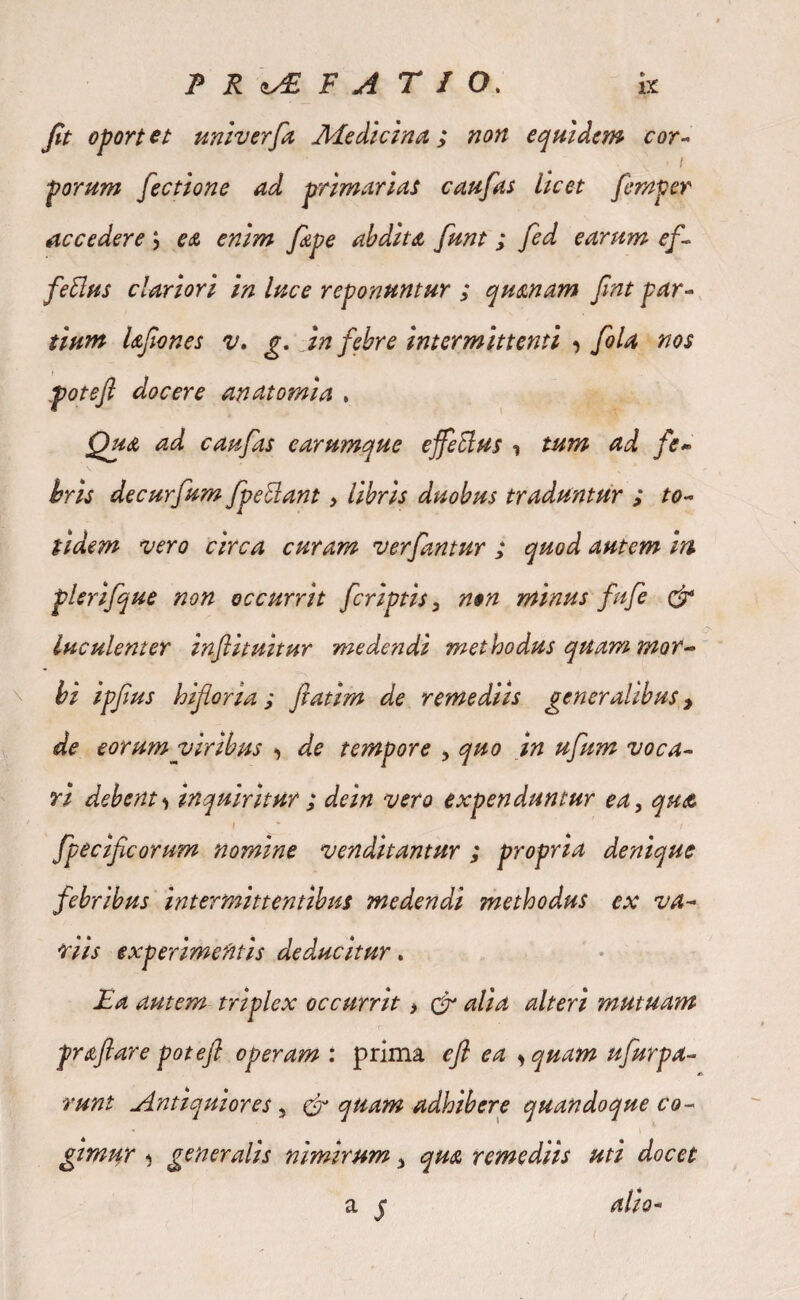 PRÆFATIO. ix
ſit oportet univerſa Medicina; non equidem cor-
porum ſectione ad primarias cauſas licet ſemper
accedere; eæ enim ſæpe abditæ ſunt; ſed earum ef-
fectus clariori in luce reponuntur; quænam ſint par-
tium læſiones v. g. in febre intermittenti, ſola nos
poteſt docere anatomia.
Quæ ad cauſas earumque effectus, tum ad fe-
bris decurſum ſpectant, libris duobus traduntur; to-
tidem vero circa curam verſantur; quod autem in
pleriſque non occurrit ſcriptis, non minus fuſe &
luculenter inſtituitur medendi methodus quam mor-
bi ipſius hiſtoria; ſtatim de remediis generalibus,
de eorum viribus, de tempore, quo in uſum voca-
ri debent, inquiritur; dein vero expenduntur ea, quæ
ſpecificorum nomine venditantur; propria denique
febribus intermittentibus medendi methodus ex va-
riis experimentis deducitur.
Ea autem triplex occurrit, & alia alteri mutuam
præſtare poteſt operam: prima eſt ea, quam uſurpa-
runt Antiquiores, & quam adhibere quandoque co-
gimur, generalis nimirum, quæ remediis uti docet
a 5 alio-